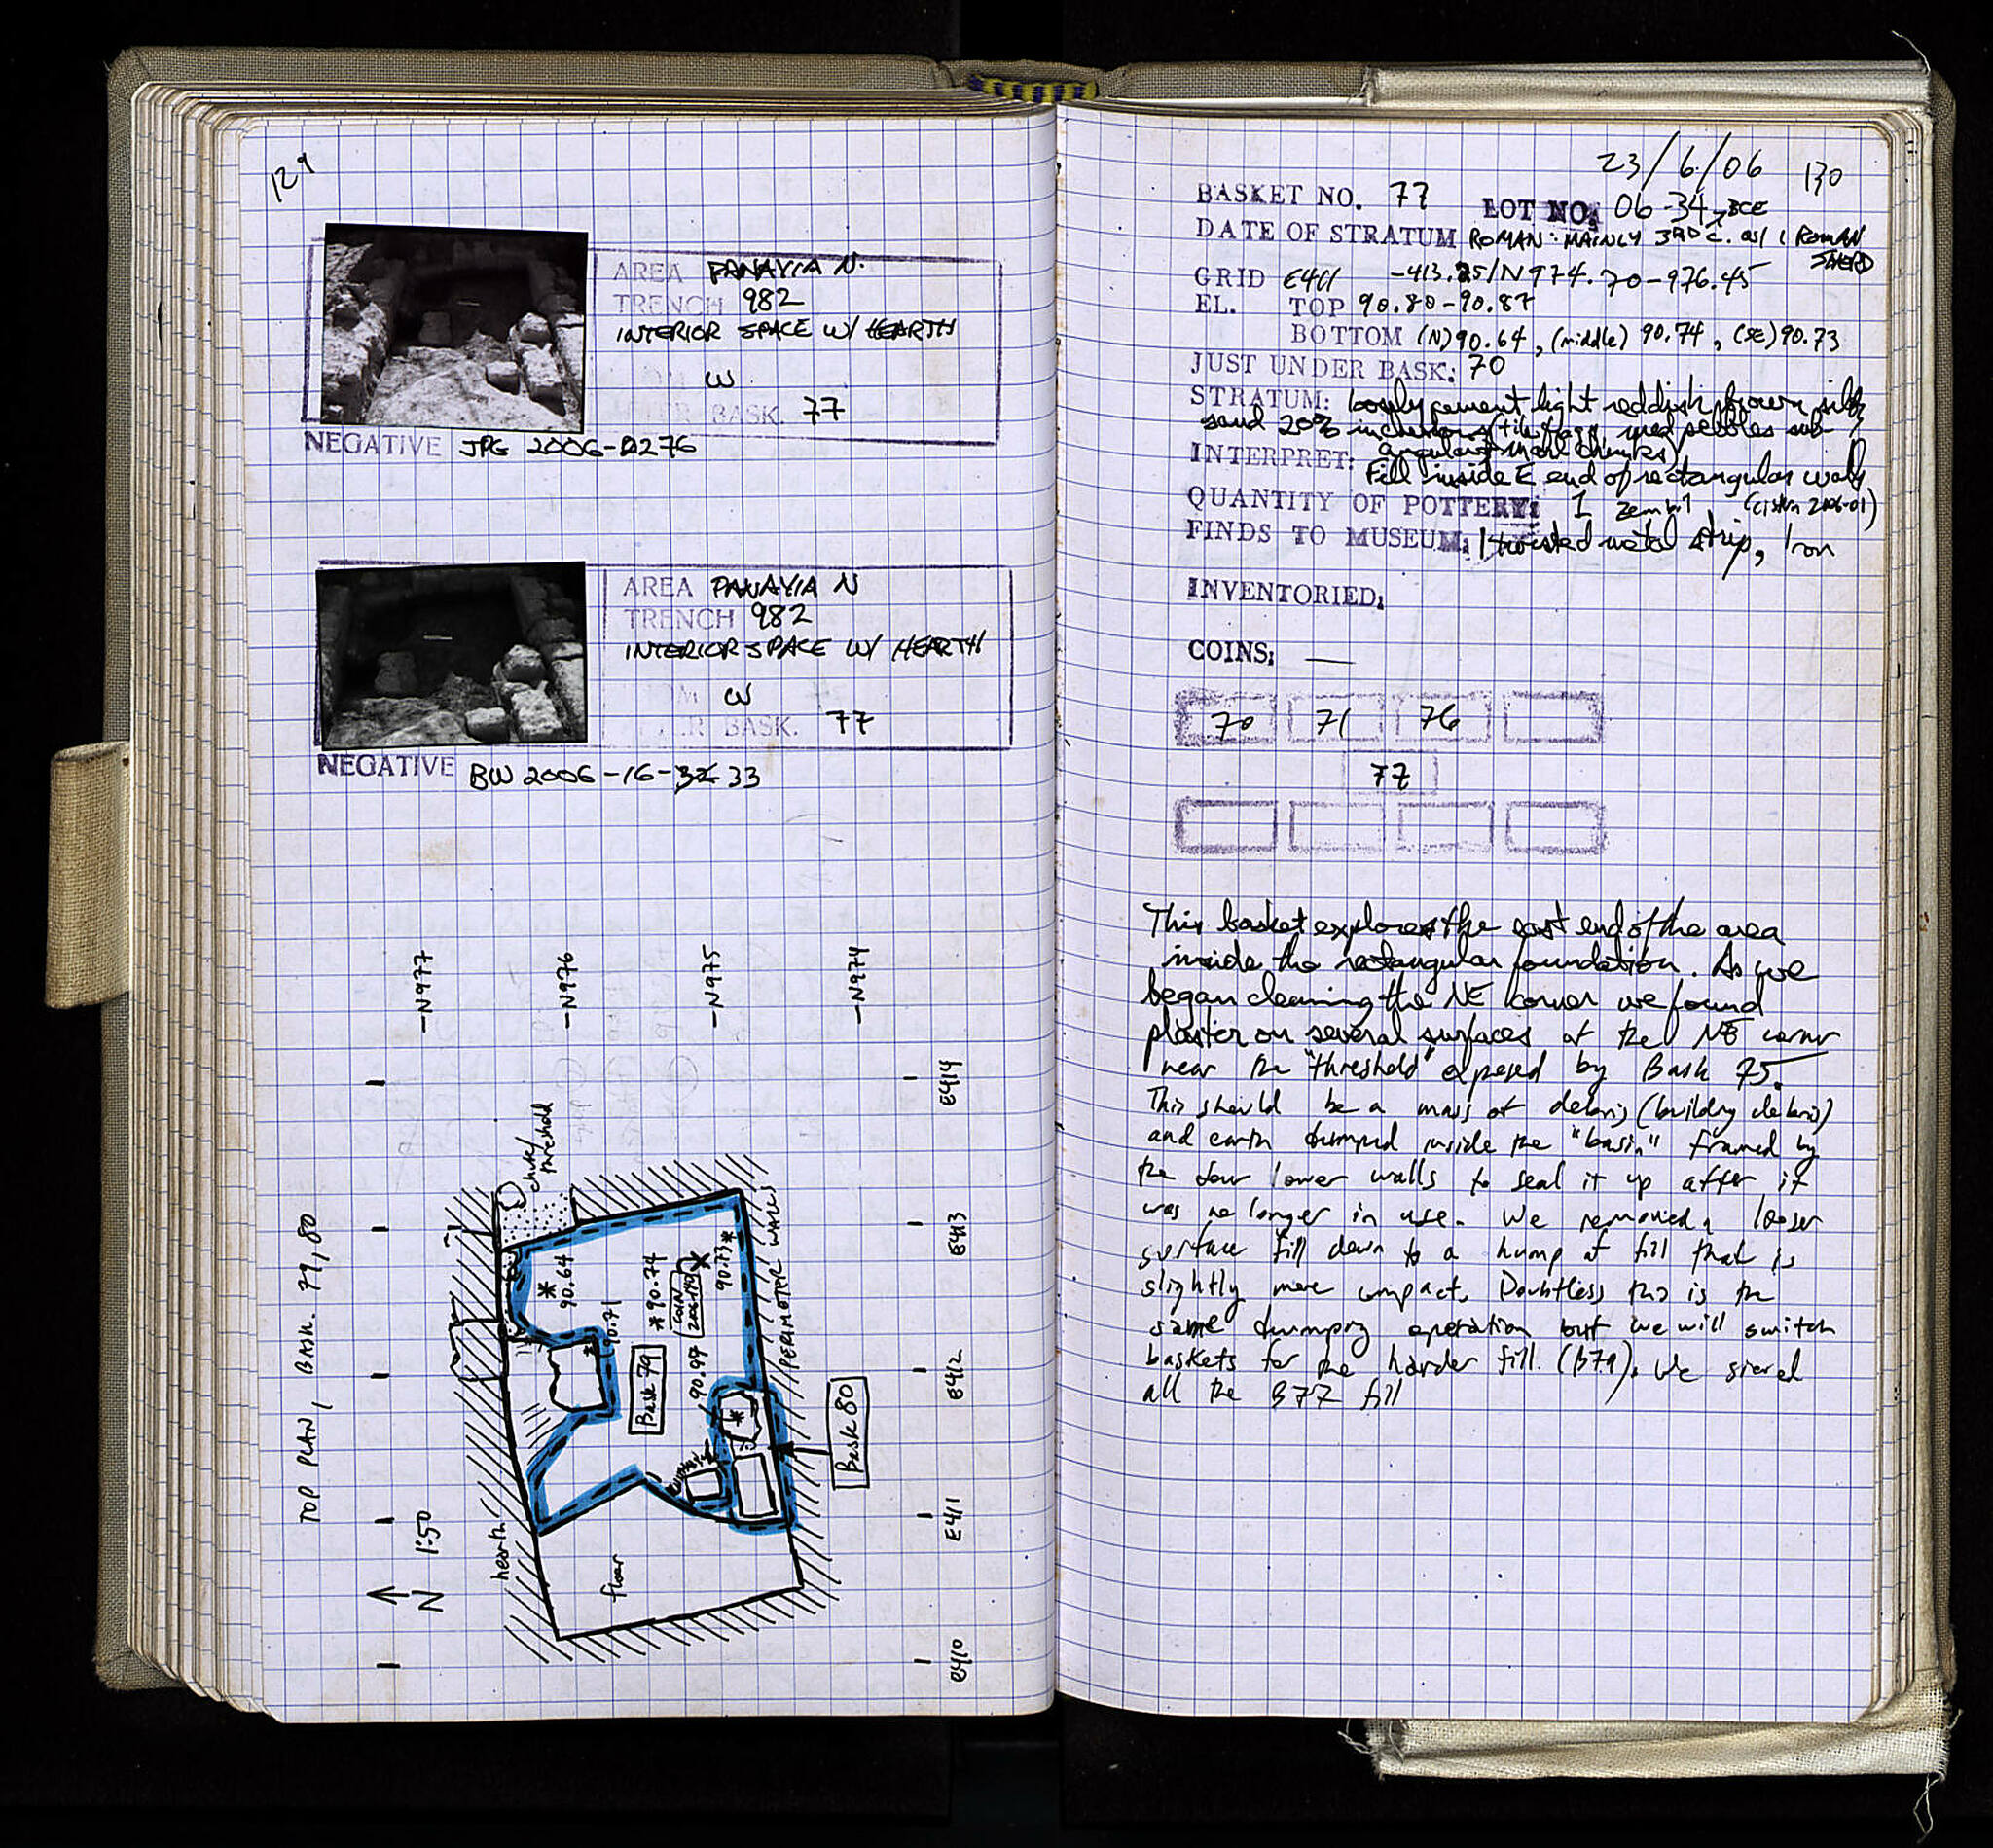 129
AREA PANAYIA N.
TRENCH 982
INTERIOR SPACE W/ HEARTH
W
BASK. 77
NEGATIVE JPG 2006-0276
AREA PANAYIA N
TRENCH 982
INTERIOR SPACE W/ HEARTH
W
BASK. 77
NEGATIVE BW 2006-16-32 33
TOP PLAN, BASK. 79, 80
N 1:50
-N977
-N976
-N975
-N974
E414
E413
E412
E411
E410
hearth
floor
chute/
threshold
PERIMETER WALLS
90.64
90.71
90.74
COIN
90.73
90.97
Bask 79
Bask 80
23/6/06 130
BASKET NO. 77 LOT NO. 06-34
DATE OF STRATUM ROMAN: MAINLY 3RD C. BCE w/ 1 ROMAN SHERD
GRID E411 -413.25/N974.70-976.45
EL. TOP 90.80-90.87
BOTTOM (N) 90.64, (middle) 90.74, (SE) 90.73
JUST UNDER BASK: 70
STRATUM: loosely cement light reddish brown silty
sand 20% inclusions (tile frag, med pebbles sub-
angular, marl chunks)
INTERPRET: Fill inside E end of rectangular walls
(cistern 2006-01)
QUANTITY OF POTTERY: 1 zembil
FINDS TO MUSEUM: 1 twisted metal strip, Iron
INVENTORIED:
COINS: —
70 71 76
77
This basket explores the east end of the area
inside the rectangular foundation. As we
began cleaning the NE corner we found
plaster on several surfaces at the NE corner
near the "threshold" exposed by Bask 75.
This should be a mass of debris (building debris)
and earth dumped inside the "basin" framed by
the four lower walls to seal it up after it
was no longer in use. We removed a looser
surface fill down to a hump of fill that is
slightly more compact. Doubtless this is the
same dumping operation but we will switch
baskets for the harder fill. (B79). We sieved
all the B77 fill